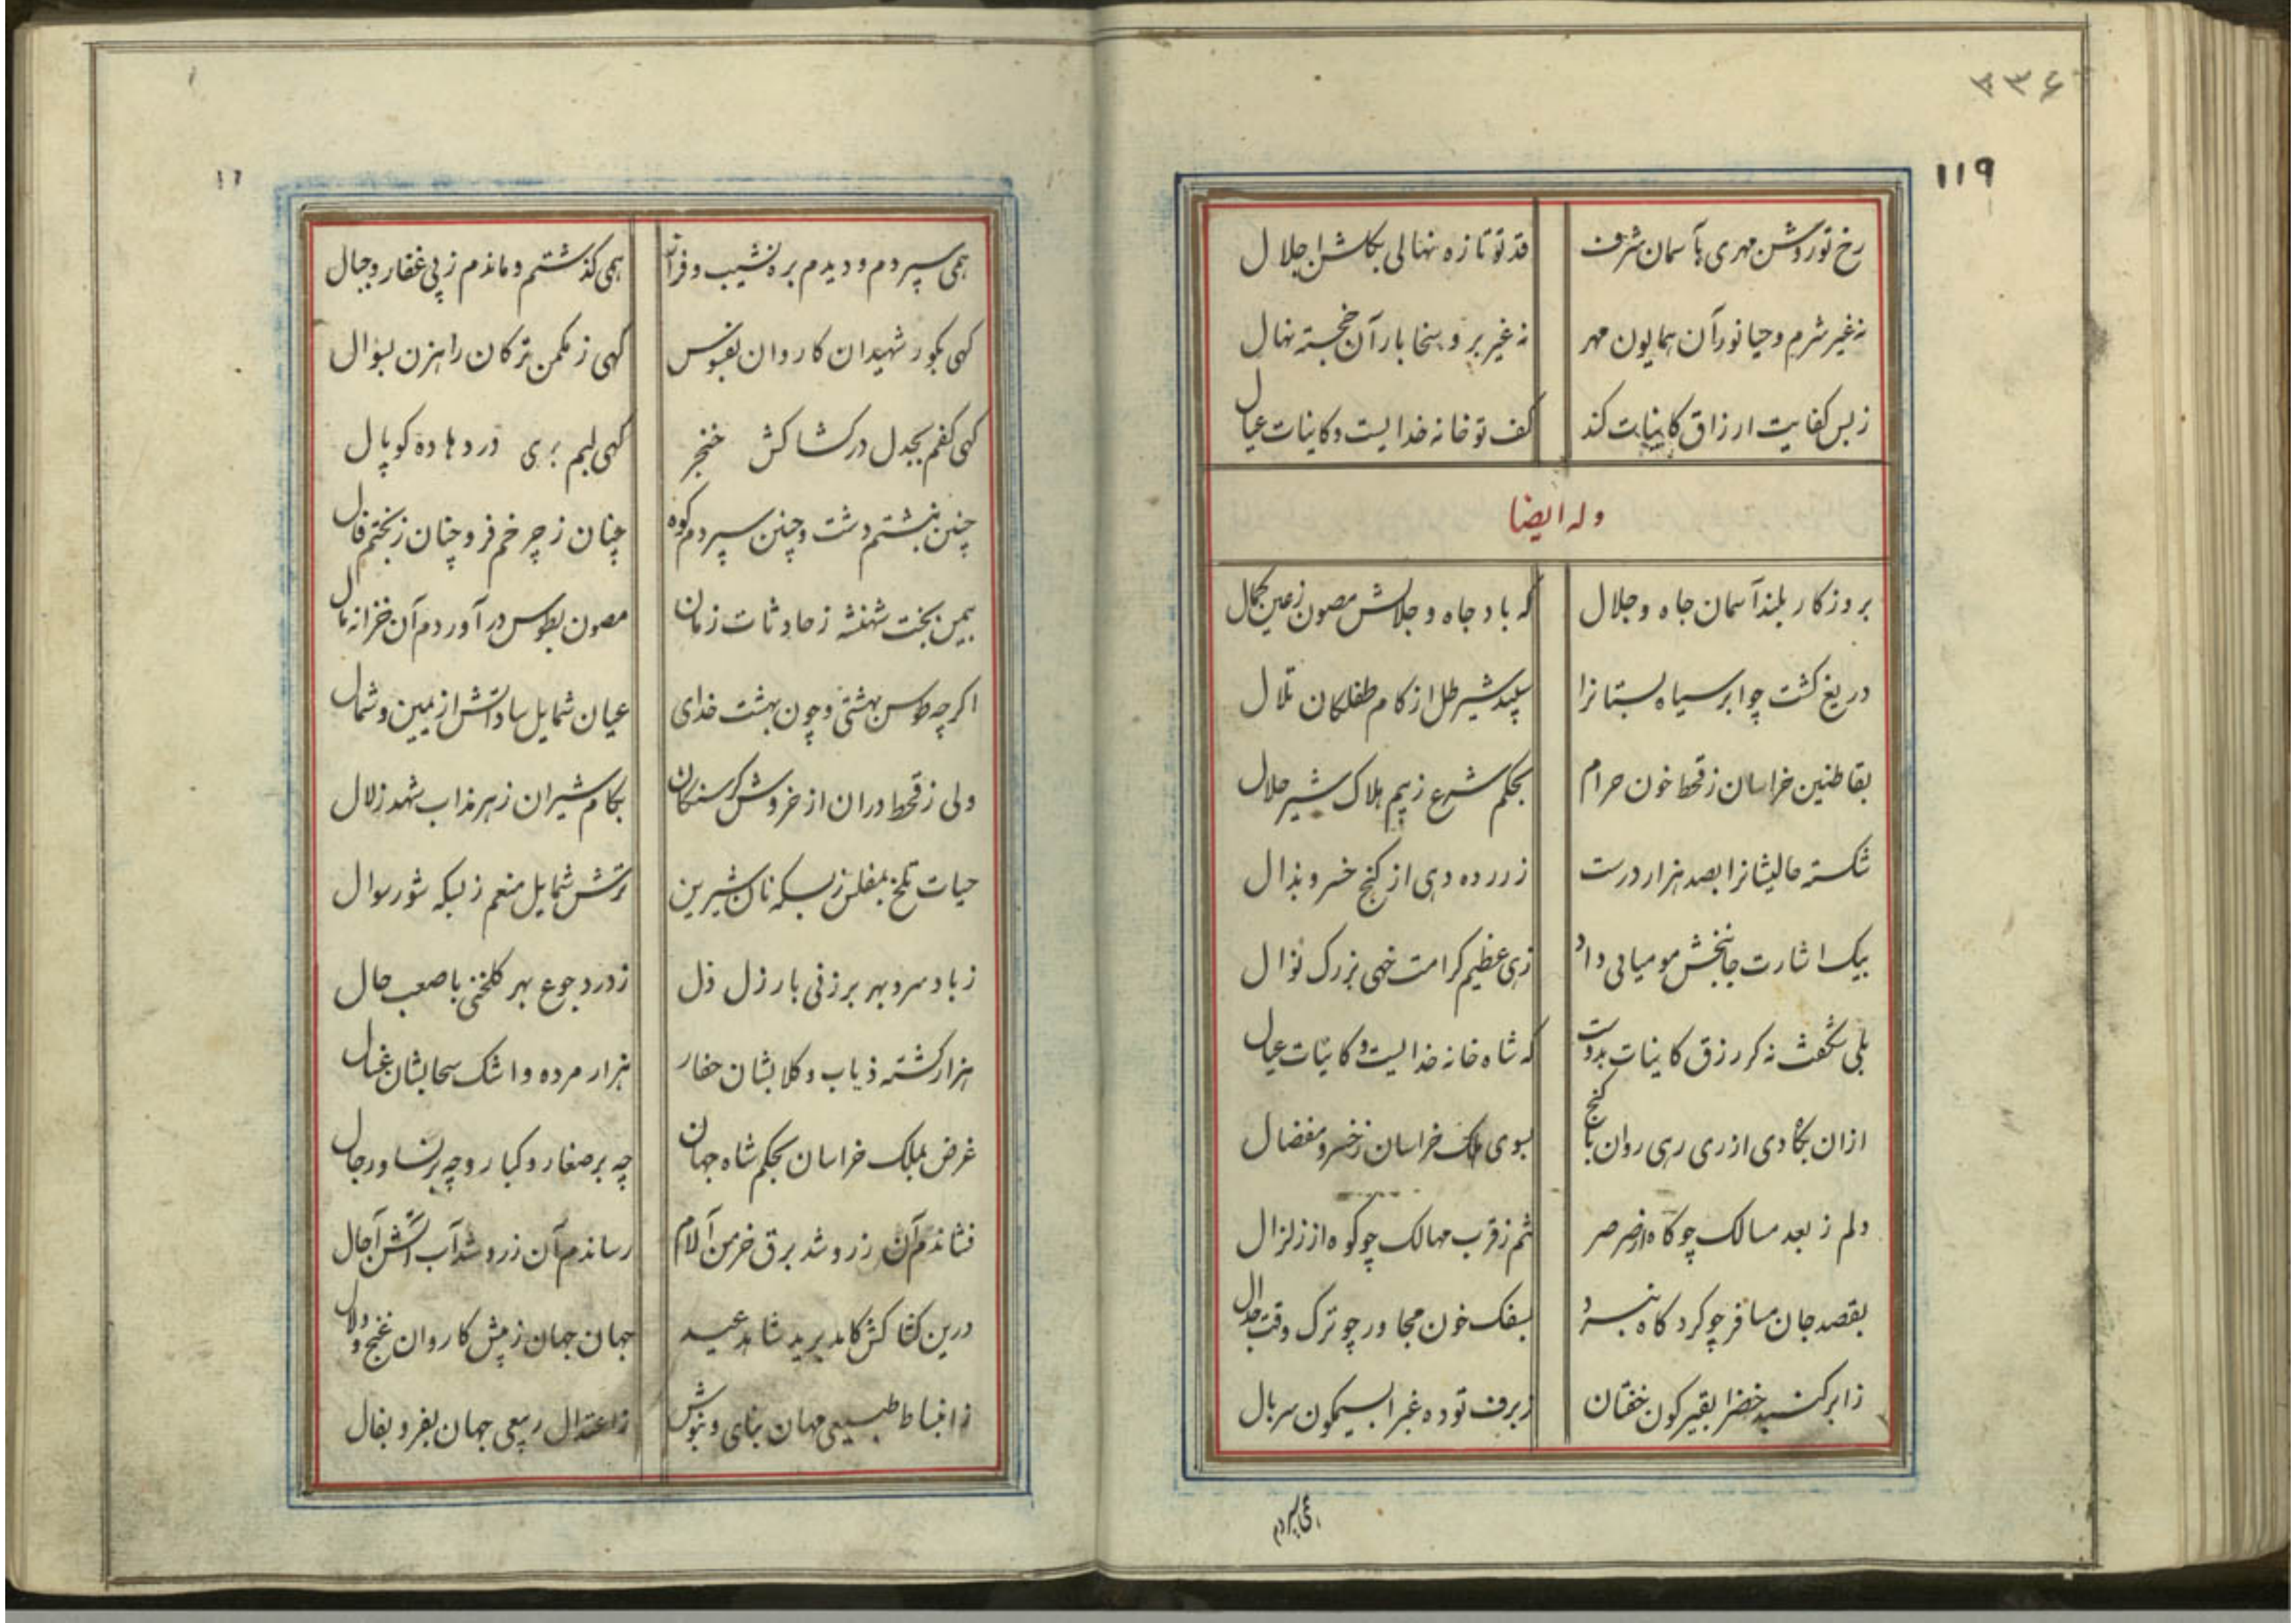 ۳۳۶
۱۱۹
رخ تو روشن مهری بآسمان شرف قد تو تازه نهالی بگلشن اجلال
نه غیر شرم و حیا نور آن همایون مهر نه غیر بر و سخا بار آن خجسته نهال
ز بس کفایت ارزاق کاینات کند کف تو خانه خدایست و کاینات عیال
وله ایضا
بروزکار بلند آسمان جاه و جلال که باد جاه و جلالش مصون ز عین کمال
دریغ کشت چو ابر سیاه بستانرا سپید شیر طل از کام طفلکان تلال
بقاطنین خراسان ز قحط خون حرام بحکم شرع ز بیم هلاک شیر حلال
شکسته حالیشانرا بصد هزار درست ز زر ده دهی از کنج خسرو بذال
بیک اشارت جانبخش مومیائی داد زهی عظیم کرامت خهی بزرک نوال
بلی شکفت نه کر رزق کاینات بدوست که شاه خانه خدایست و کاینات عیال
ازان بکاه دی از ری رهی روان با کنج بسوی ملک خراسان ز خسرو مفضال
دلم ز بعد مسالک چو کاه از صرصر تنم ز قرب مهالک چو کوه از زلزال
بقصد جان مسافر چو کرد کاه نبرد بسفک خون مجاور چو ترک وقت جدال
ز ابر کنبد خضرا بقیرکون خفتان ز برف توده غبرا بسیمکون سربال
همی سپردم
همی سپردم و دیدم بره نشیب و فراز همی کذشتم و ماندم ز پی عفار و جبال
کهی بکور شهیدان کاروان بفسوس کهی ز مکمن ترکان راهزن بسوال
کهی کفم بجدل در کشاکش خنجر کهی لبم بری در دهاده کوپال
چنین نبشتم دشت و چنین سپردم کوه چنان ز چرخم فر و چنان ز بختم فال
بیمن بخت شهنشه ز حادثات زمان مصون بطوس در آوردم آن خزانه مال
اکرچه طوس بهشتی و چون بهشت خدای عیان شمایل ساداتش از یمین و شمال
ولی ز قحط دران از خروش کرسنکان بکام شیران زهر مذاب شهد زلال
حیات تلخ بمفلس ز بسکه نان شیرین ترش شمایل منعم ز بسکه شور سوال
ز باد سرد بهر برزنی بارزل ذل ز درد جوع بهر کلخنی باصعب حال
هزار کشته ذیاب و کلابشان حفار هزار مرده و اشک سحابشان غسال
غرض بملک خراسان بحکم شاه جهان چه بر صغار و کبار و چه بر نسا و رجال
فشاندم آن زر و شد برق خرمن آلام رساندم آن زر و شد آب آتش آجال
درین کشاکش کامد برید شاهد عید جهان جهان ز پیش کاروان غنج و دلال
ز انبساط طبیعی مهان بنای و بنوش ز اعتدال ربیعی جهان بفر و بفال